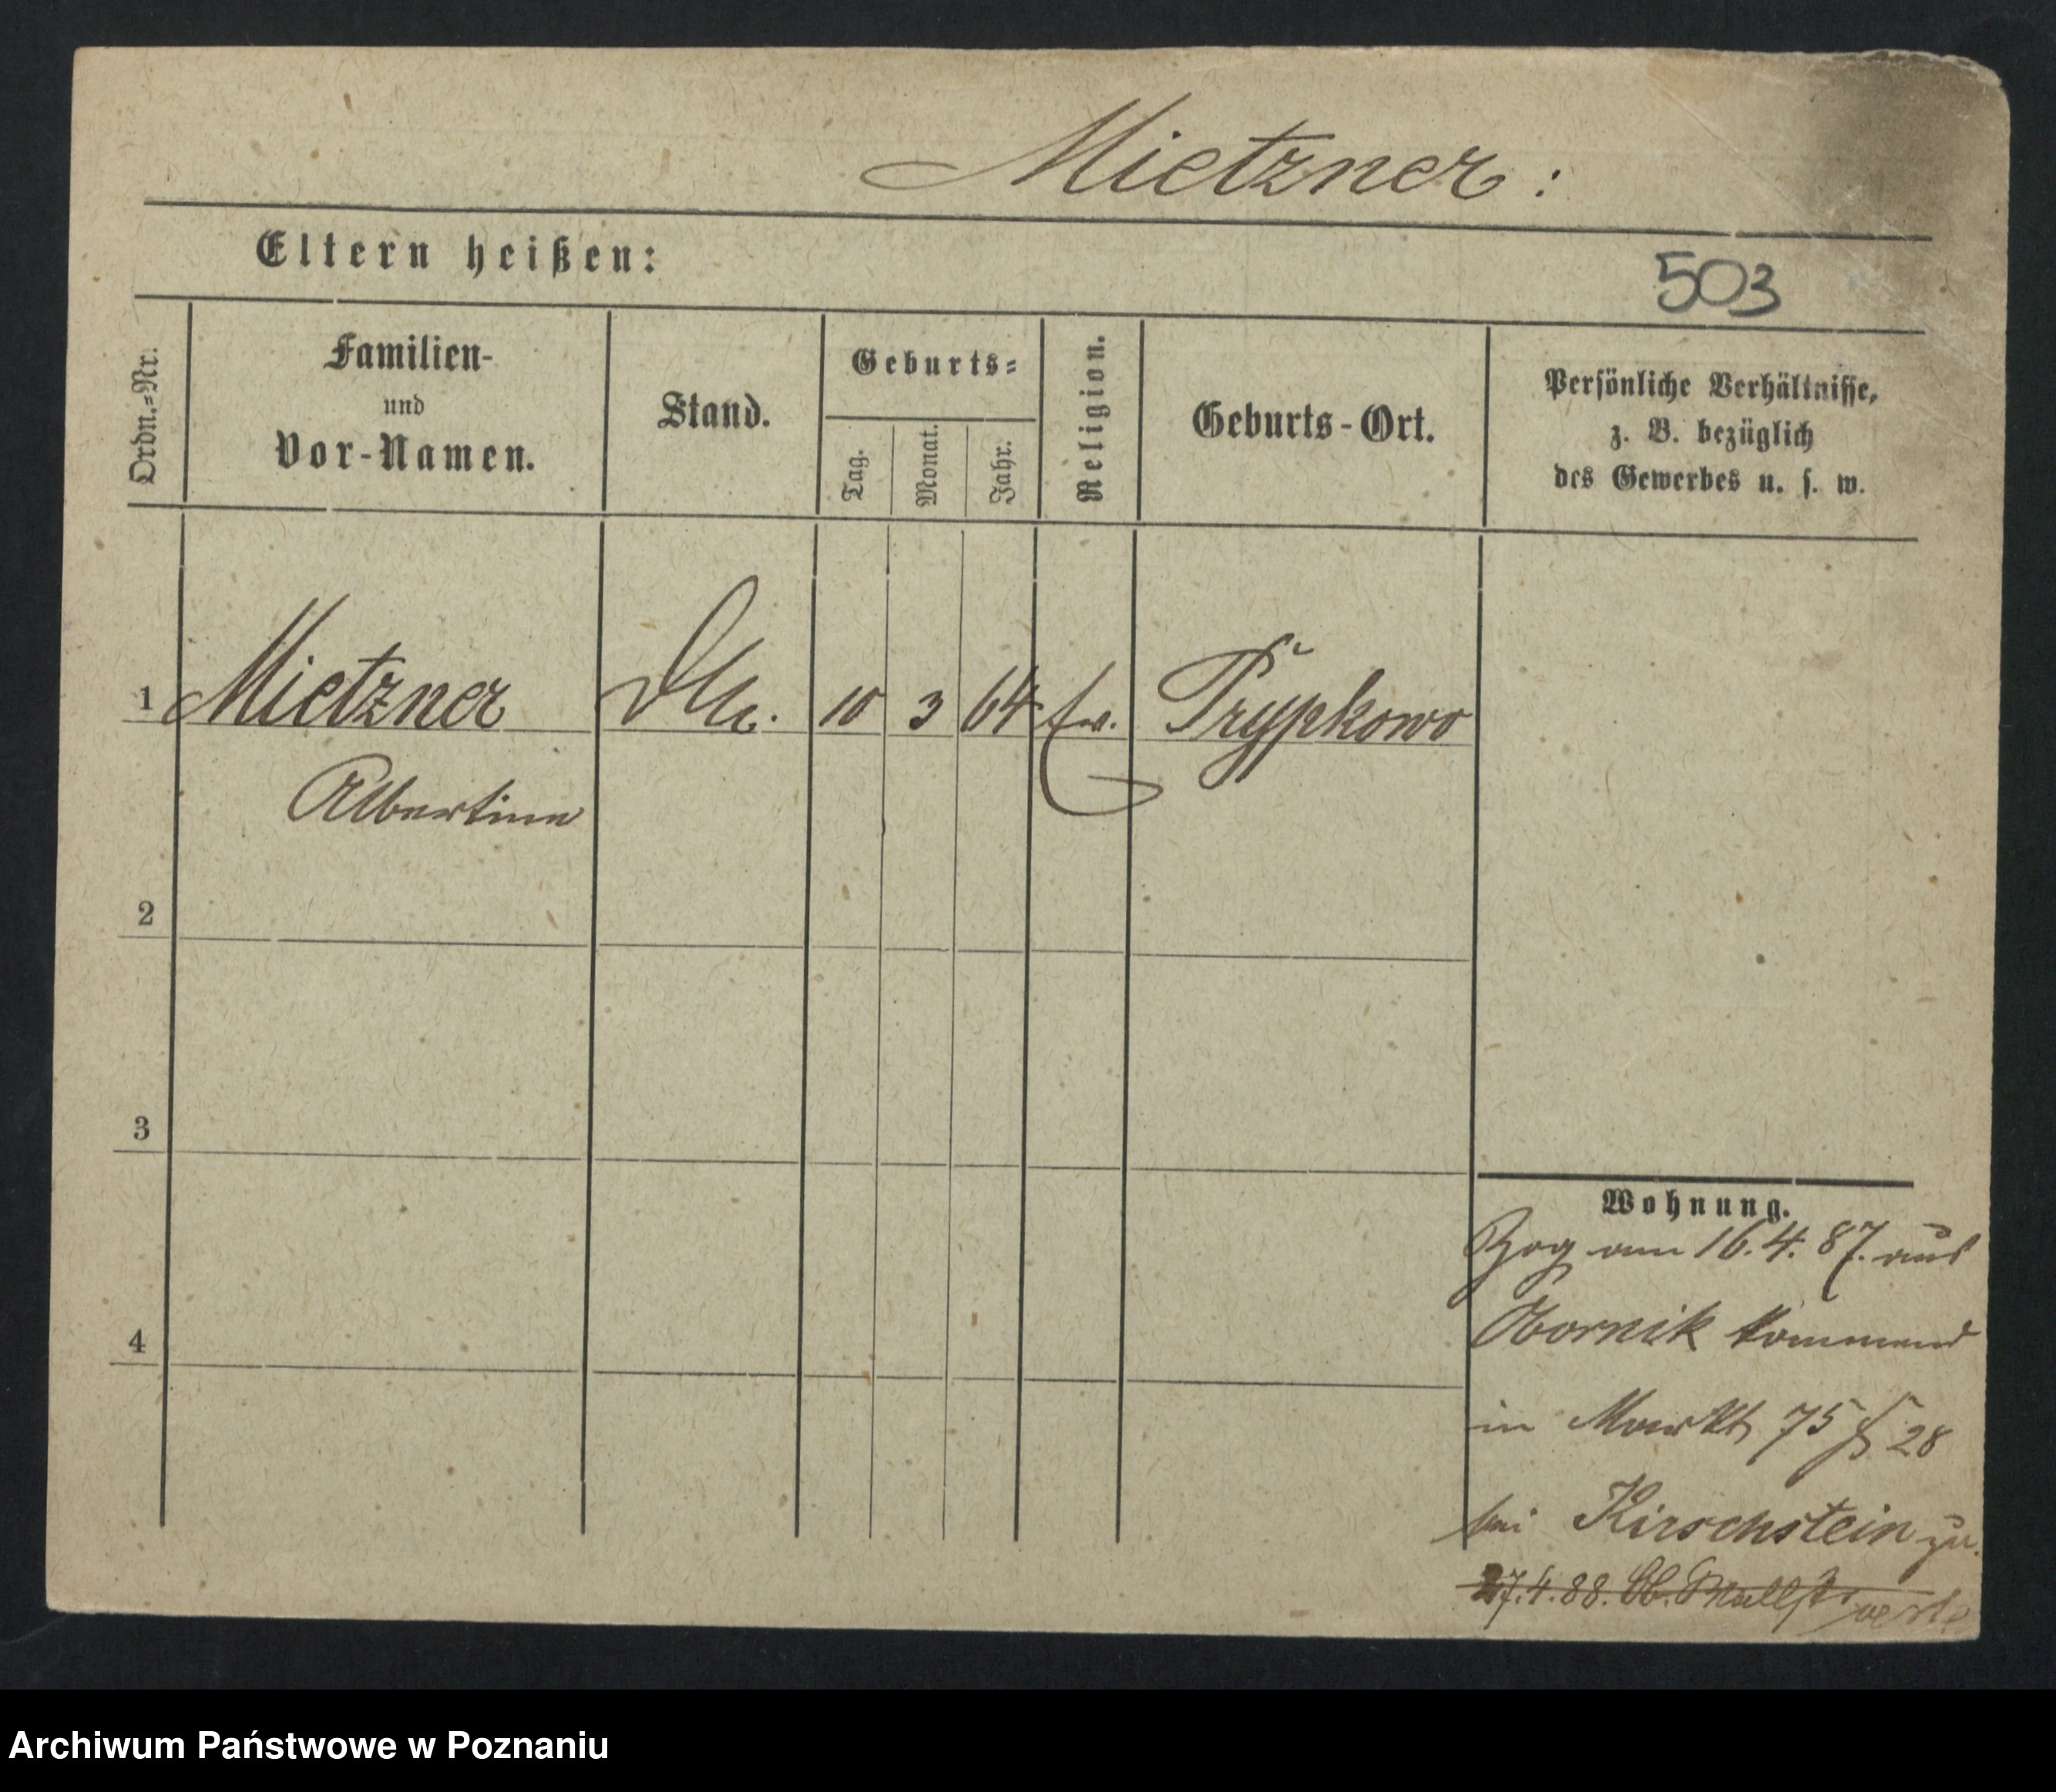 Mietzner:
Eltern heißen:
503
Ordn.=Nr.
Familien-
und
Vor-Namen.
Stand.
Geburts=
Tag.
Monat.
Jahr.
Religion.
Geburts-Ort.
Persönliche Verhältnisse,
z. B. bezüglich
des Gewerbes u. s. w.
1 Mietzner 10 3 64 ev. Trypkowo
Albertine
2
3
4
Wohnung.
Zog am 16.4.87. aus
Obornik kommend
in Markt 75 28
bei Kirschstein zu.
27.4.88.
Archiwum Państwowe w Poznaniu